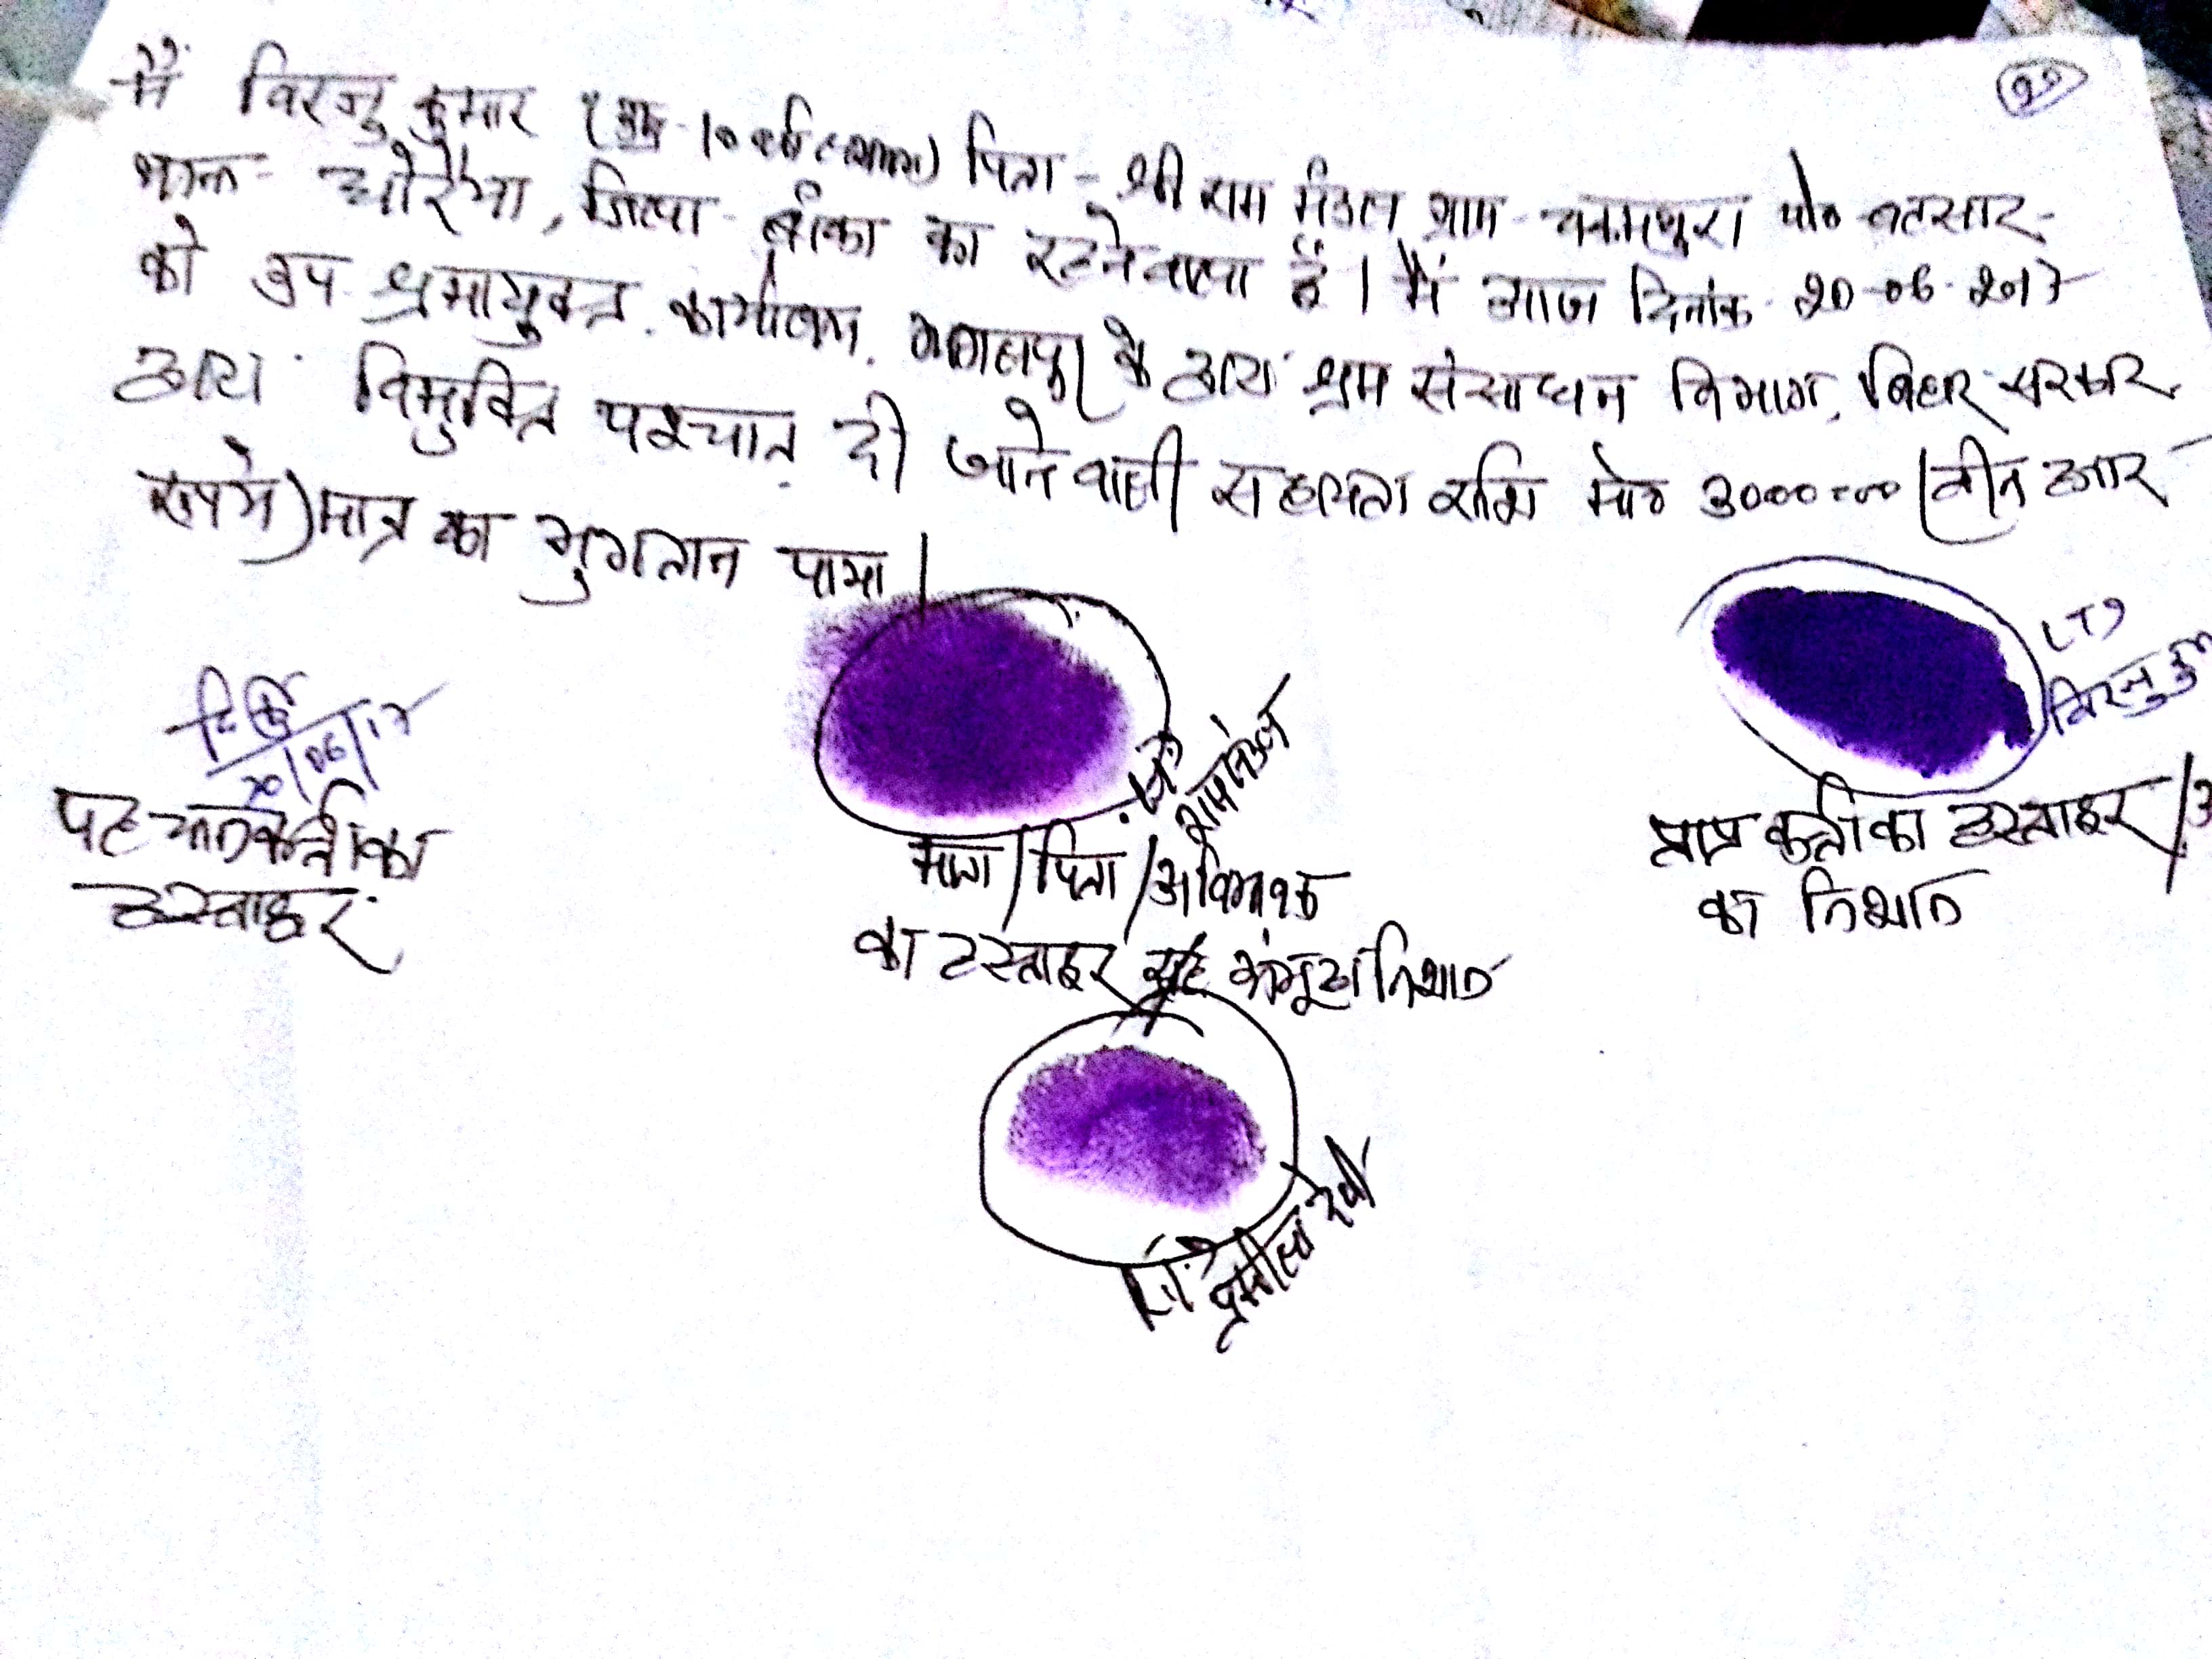 ११
मैं विरजु कुमार (उम्र-10 वर्ष लगभग) पिता - श्री राम मंडल ग्राम - पो० बतसार-
थाना - धोरैया, जिला - बाँका का रहनेवाला हूँ। मैं आज दिनांक - 20-06-2017
को उप श्रमायुक्त कार्यालय, भागलपुर के द्वारा श्रम संसाधन विभाग, बिहार सरकार
द्वारा विमुक्ति पश्चात दी जाने वाली सहायता राशि मो० 3000=00 (तीन हजार
रूपये) मात्र का भुगतान पाया।
20/06/17
पहचानकर्ता का
हस्ताक्षर
राम मंडल
माता/पिता/अविभावक
का हस्ताक्षर सह अंगूठा निशान
प्रमीला देवी
LTI
विरजु कु
प्राप्त कर्ता का हस्ताक्षर/अ
का निशान